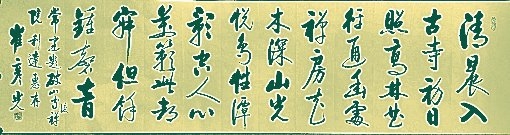 清晨入
古寺初日
照高林曲
徑通幽處
禪房花
木深山光
悦鸟性潭
影空人心
萬籟此都
寂但餘
鐘磬音
常建題破山寺禅
利達惠存